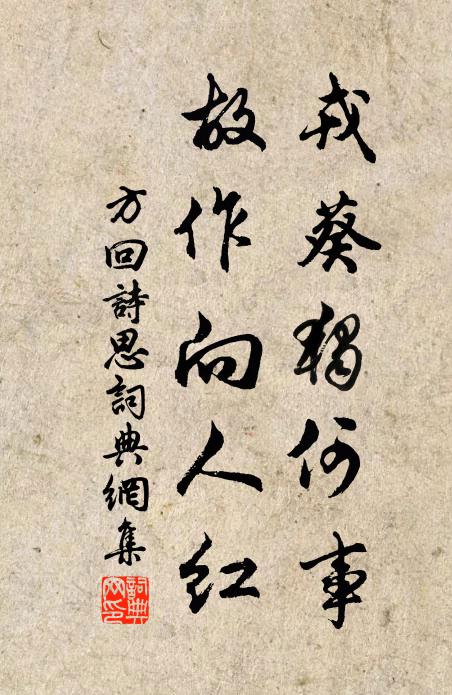 戎葵獨何事
故作向人紅
方回詩思詞典網集
詞典網印